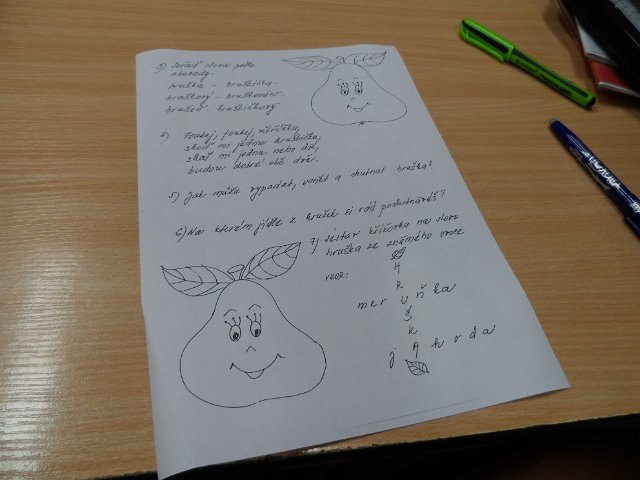 3) Seřaď slova podle
abecedy:
hruška - hruštička -
hruškový - hruškování -
hrušeň - hruštičkový
4) Foukej, foukej, větříčku,
shoď mi jednu hruštičku,
shoď mi jednu nebo dvě,
budou dobré obě dvě.
5) Jak může vypadat, vonět a chutnat hruška?
6) Na kterém jídle z hrušek si rád pochutnáš?
7) Sestav křížovku na slovo
hruška ze známého ovoce
vzor:
H
R
mer U ňka
Š
K
j A hoda